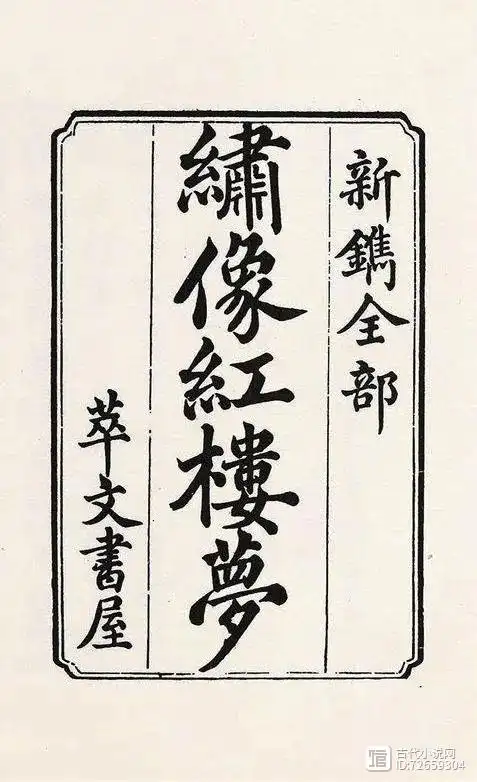 新鐫全部
繡像紅樓夢
萃文書屋
古代小说网
ID:72659304